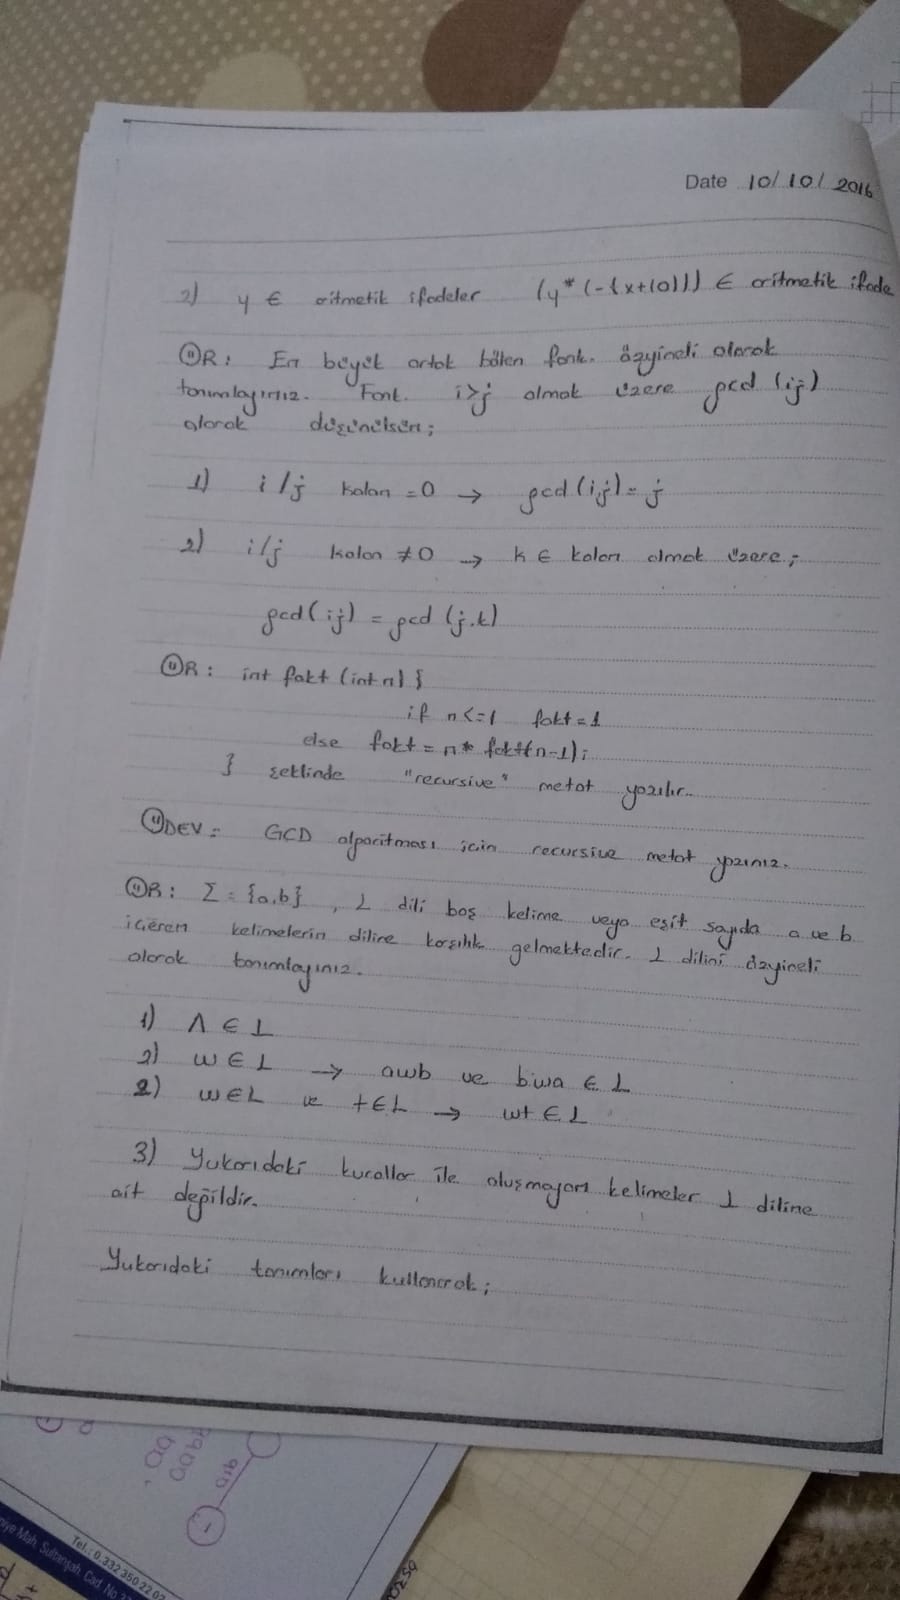 Date 10/10/2016
2) y ∈ aritmetik ifadeler (y*(-(x+10))) ∈ aritmetik ifade
ÖR: En büyük ortak bölen fonk. özyineli olarak
tanımlayınız. Fonk. i>j olmak üzere gcd (i,j)
olarak düşünülsün;
1) i/j kalan =0 → gcd(i,j)=j
2) i/j kalan ≠0 → k ∈ kalan olmak üzere;
gcd(i,j) = gcd (j,k)
ÖR: int fakt (int n) {
if n<=1 fakt=1
else fakt=n* fakt(n-1);
} şeklinde "recursive" metot yazılır.
ÖDEV= GCD algoritması için recursive metot yazınız.
ÖR: Σ={a,b} , L dili boş kelime veya eşit sayıda a ve b
içeren kelimelerin diline karşılık gelmektedir. L dilini özyineli
olarak tanımlayınız.
1) Λ ∈ L
2) w ∈ L → awb ve bwa ∈ L
2) w∈L ve t∈L → wt ∈ L
3) Yukarıdaki kurallar ile oluşmayan kelimeler L diline
ait değildir.
Yukarıdaki tanımları kullanarak;
aa
aab
a,b
-
niye Mah. Sultanşah Cad. No
Tel.: 0.332 350 22 02